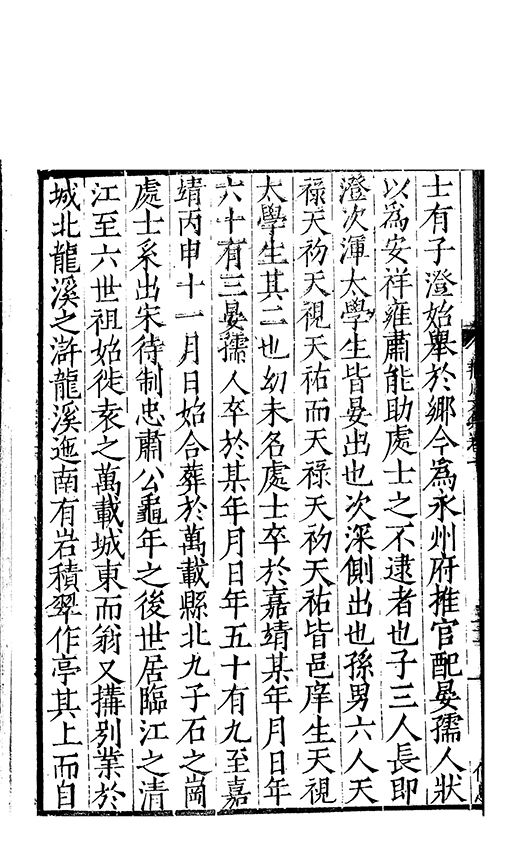 士有子澄始舉於鄉今為永州府推官配晏孺人狀
以爲安祥雍肅能助處士之不逮者也子三人長即
澄次渾太學生皆晏出也次深側出也孫男六人天
祿天礿天視天祐而天祿天礿天祐皆邑庠生天視
太學生其二也幼未名處士卒於嘉靖某年月日年
六十有三晏孺人卒於某年月日年五十有九至嘉
靖丙申十一月日始合葬於萬載縣北九子石之崗
處士系出宋待制忠肅公龜年之後世居臨江之清
江至六世祖始徙袁之萬載城東而翁又搆別業於
城北龍溪之滸龍溪迤南有岩積翠作亭其上而自